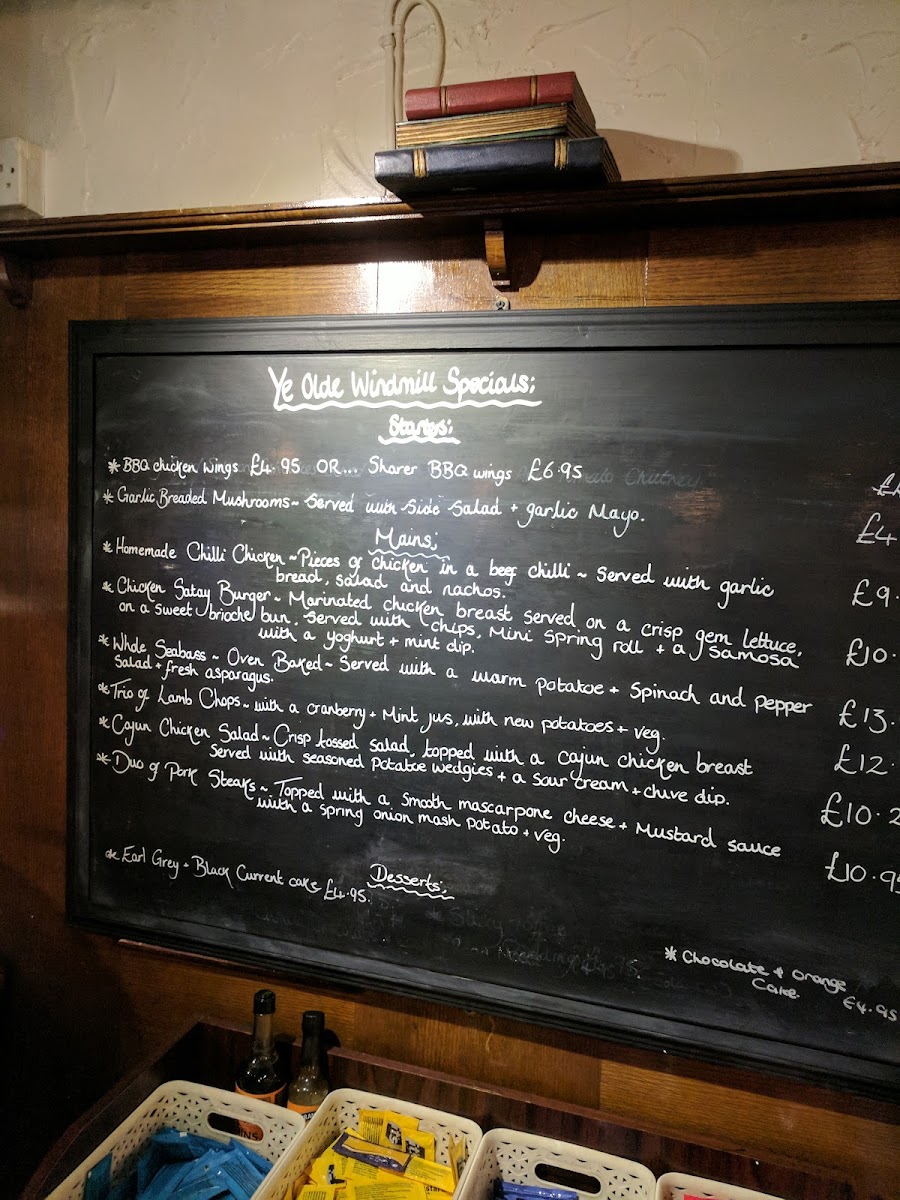 Ye Olde Windmill Specials;
Starters;
* BBQ chicken wings £4.95 OR... Sharer BBQ wings £6.95
* Garlic Breaded Mushrooms ~ Served with Side Salad + garlic Mayo. £4
Mains;
* Homemade Chilli Chicken ~ Pieces of chicken in a beef chilli ~ Served with garlic
bread, salad and nachos. £9.
* Chicken Satay Burger ~ Marinated chicken breast served on a crisp gem lettuce,
on a sweet brioche bun, served with chips, Mini Spring roll + a samosa £10.
with a yoghurt + mint dip.
* Whole Seabass ~ Oven Baked ~ Served with a warm potatoe + Spinach and pepper
Salad + fresh asparagus. £13.
* Trio of Lamb Chops ~ with a cranberry + Mint Jus, with new potatoes + veg. £12.
* Cajun Chicken Salad ~ Crisp tossed salad, topped with a cajun chicken breast
served with seasoned Potatoe wedgies + a sour cream + chive dip. £10.2
* Duo of Pork Steaks ~ Topped with a smooth mascarpone cheese + Mustard sauce
with a spring onion mash potato + veg. £10.95
Desserts;
* Earl Grey + Black Current cake £4.95.
* Chocolate + Orange
Cake. £4.95